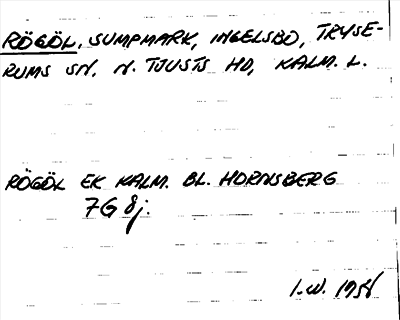 RÖGÖL, SUMPMARK, INGELSBO, TRYSE-
RUMS SN, N. TJUSTS HD, KALM. L.
RÖGÖL EK KALM. BL. HORNSBERG
7G 8j.
I.W. 1958